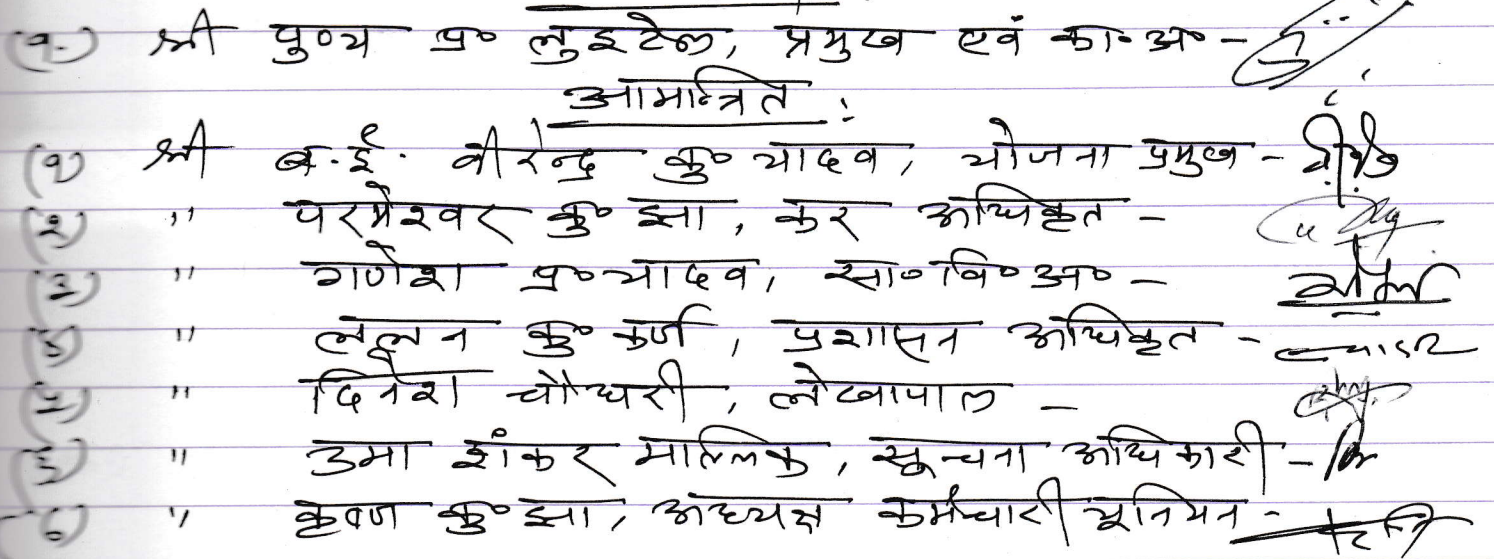 (१) श्री पुण्य प्र० लुइटेल, प्रमुख एवं का.अ० -
आमान्त्रित :
(१) श्री ब.ई. वीरेन्द्र कु० यादव, योजना प्रमुख -
(२) " परमेश्वर कु० झा, कर अधिकृत -
(३) " गणेश प्र० यादव, सा० वि० अ० -
(४) " ललन कु० कर्ण, प्रशासन अधिकृत -
(५) " दिनेश चौधरी, लेखापाल -
(६) " उमा शंकर मल्लिक, सूचना अधिकारी -
(७) " कृष्ण कु० झा, अध्यक्ष कर्मचारी यूनियन -